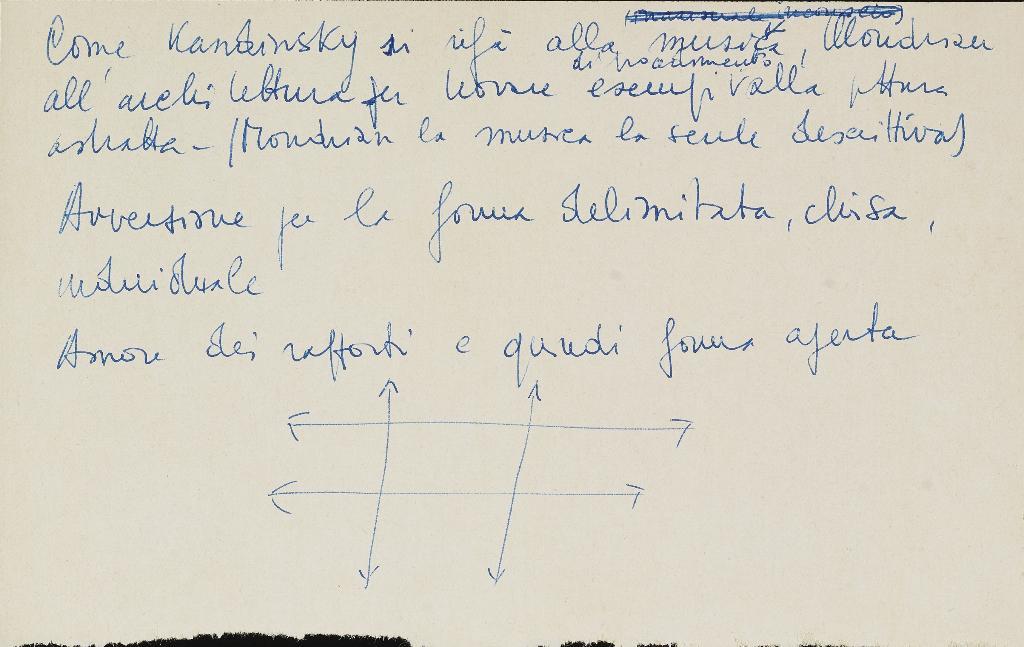 Come Kandinsky si rifà alla musica, Mondrian
di riconoscimento
all'architettura per trovare esempi alla pittura
astratta - (Mondrian la musica la sente descrittiva)
Avversione per la forma delimitata, chiusa,
individuale
Amore dei rapporti e quindi forma aperta